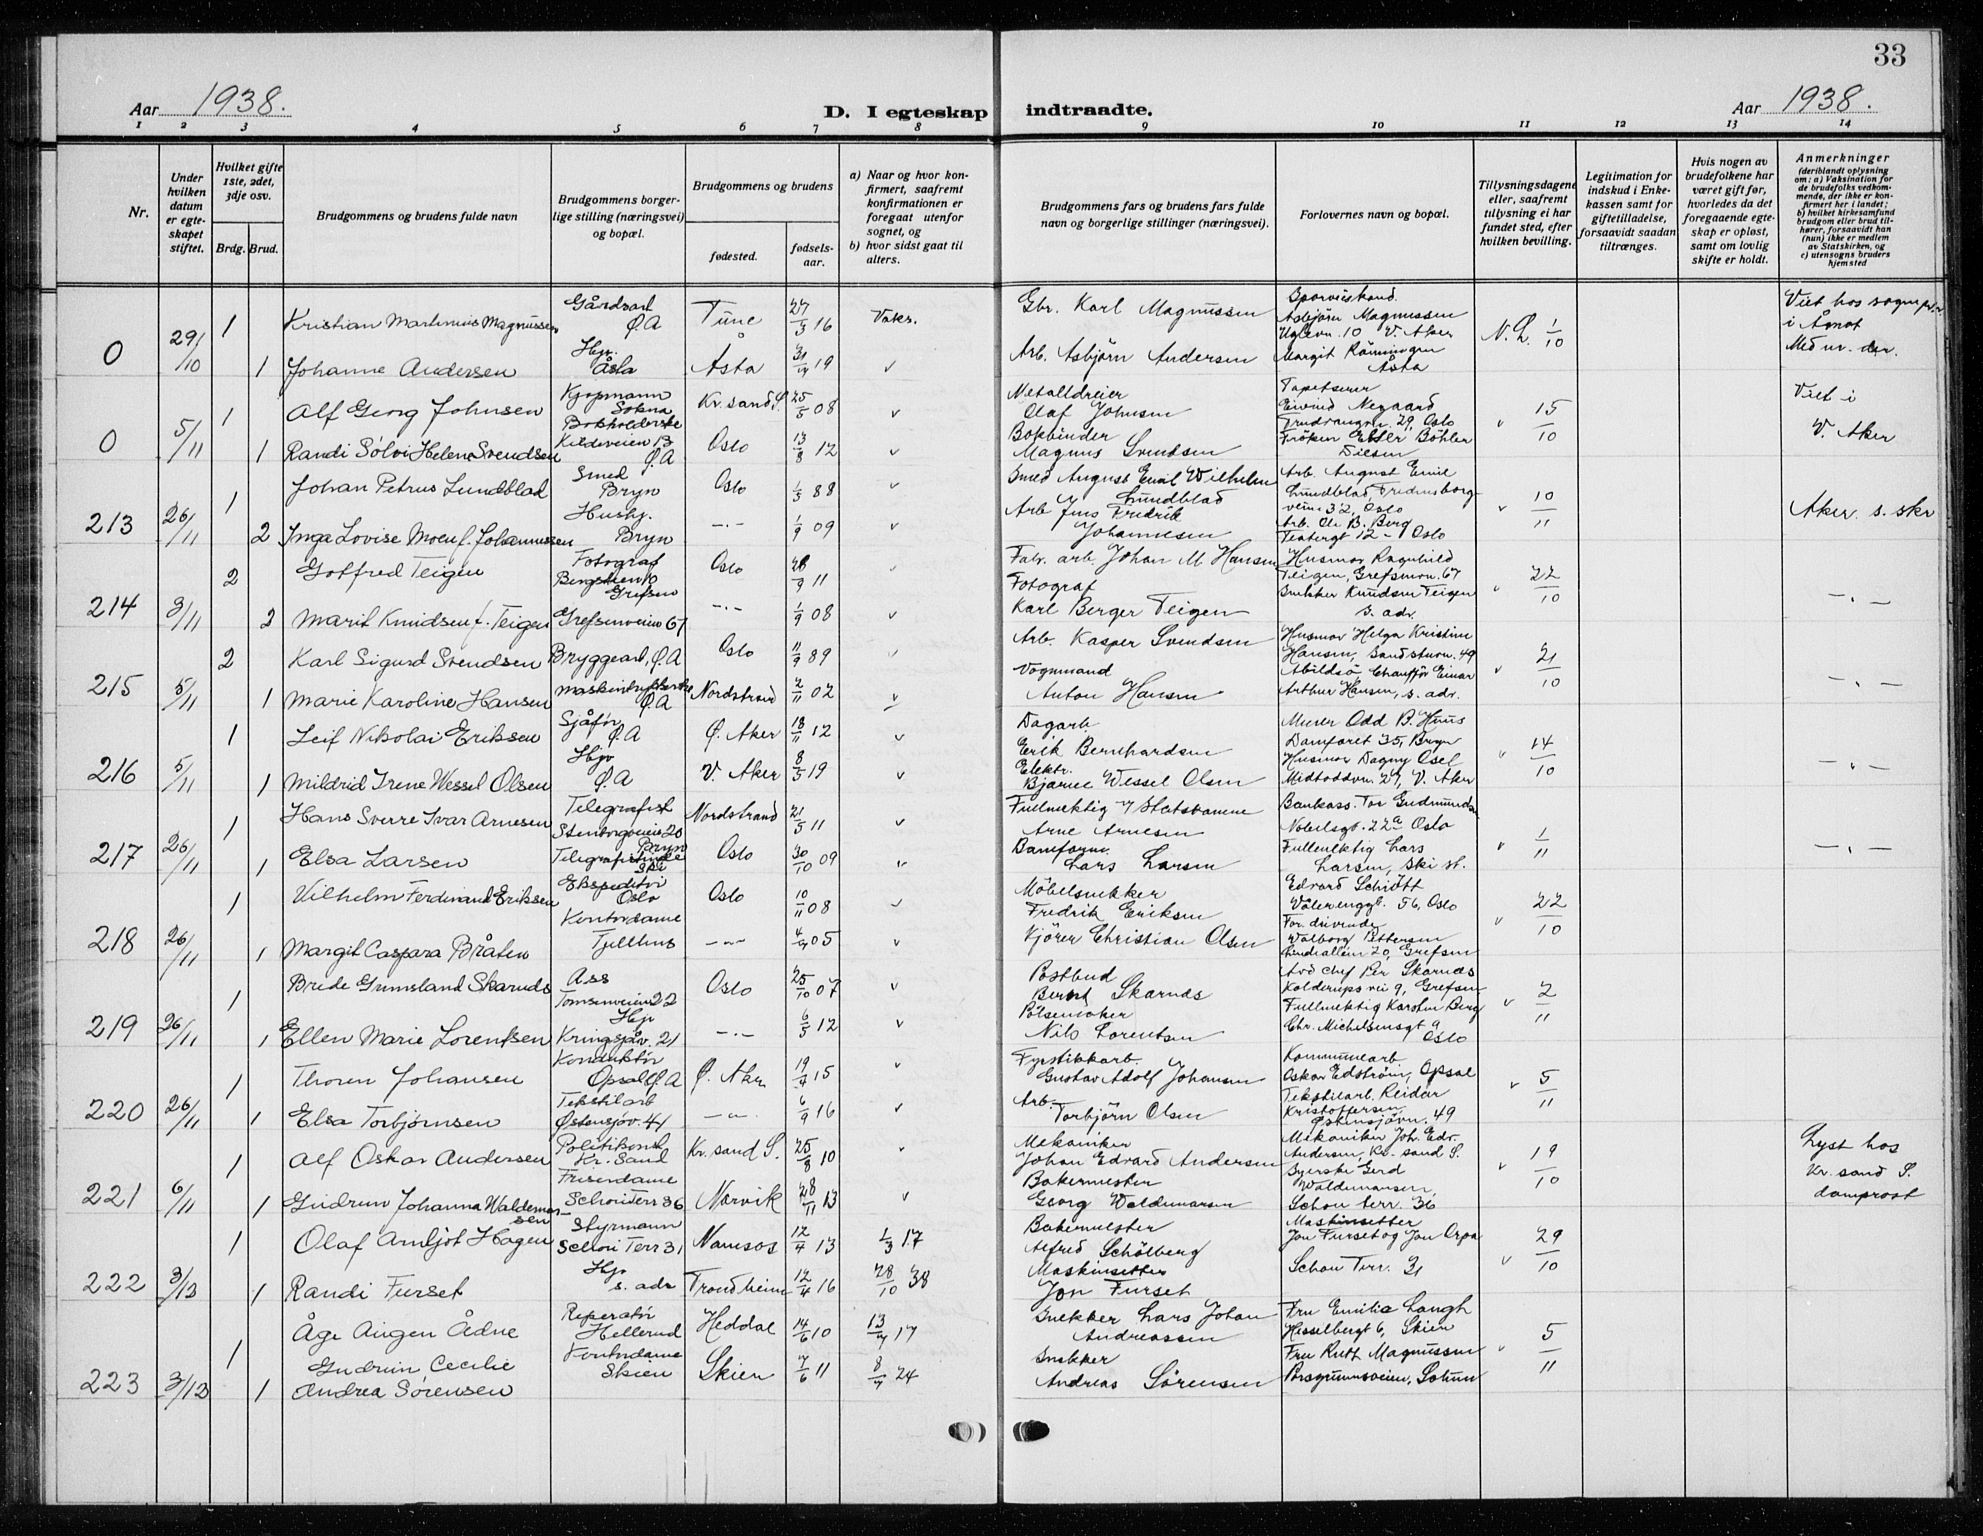 33
Aar 1938.
D. I egteskap indtraadte.
Aar 1938.
1 2 3 4 5 6 7 8 9 10 11 12 13 14
Nr.
Under hvilken datum er egte-skapet stiftet.
Hvilket gifte 1ste, 2det, 3dje osv.
Brdg. Brud.
Brudgommens og brudens fulde navn
Brudgommens borger-lige stilling (næringsvei) og bopæl.
Brudgommens og brudens
fødested.
fødsels-aar.
a) Naar og hvor kon-firmert, saafremt konfirmationen er foregaat utenfor sognet, og
b) hvor sidst gaat til alters.
Brudgommens fars og brudens fars fulde navn og borgerlige stillinger (næringsvei).
Forlovernes navn og bopæl.
Tillysningsdagene eller, saafremt tillysning ei har fundet sted, efter hvilken bevilling.
Legitimation for indskud i Enke-kassen samt for giftetilladelse, forsaavidt saadan tiltrænges.
Hvis nogen av brudefolkene har været gift før, hvorledes da det foregaaende egte-skap er opløst, samt om lovlig skifte er holdt.
Anmerkninger
(deriblandt oplysning om: a) Vaksination for de brudefolks vedkom-mende, der ikke er kon-firmert her i landet;
b) hvilket kirkesamfund brudgom eller brud til-hører, forsaavidt han (hun) ikke er medlem av Statskirken, og
c) utensogns bruders hjemsted
0 29/10 1 Kristian Martinius Magnussen Gårdsarb. Ø.A Tune 27/3 16 Vaks. Gbr. Karl Magnussen Asbjørn Magnussen Uglevn. 10 V. Aker N.L. 1/10 Viet hos sogneprr. i Åmot
1 Johanne Andersen Hjv. Åsta Åsta 31/ 19 v Arb. Asbjörn Andersen Margit Rönningen Åsta
0 5/11 1 Alf Georg Johnsen Kjøpmann Sokna Kr. sand S. 25/5 08 v Metalldreier Olaf Johnsen Tapetserer Eivind Negaard 29, Oslo v 15/10 Viet i V. Aker
1 Randi Sólvi Helene Svendsen Bokholderske Kildeveien 13 Ø.A Oslo 13/8 12 v Bokbinder Magnus Svendsen Fröken Böhler
213 26/11 1 Johan Petrus Lundblad Smed Bryn Oslo 1/3 88 v Smed August Emil Wilhelm Lundblad Arb. August Emil Lundblad, Fredensborg-veien 32, Oslo v 10/11 Aker s. skr
2 Inga Lovise Moen f. Johannessen Hushj. Bryn -"- 1/9 09 v Arb Jens Fredrik Johannesen Arb. Ole B. Berg Teatergt 12 - Oslo
214 3/11 2 Gotfred Teigen Fotograf Bergslien 10 Grefsen Oslo 28/9 11 v Fabr. arb Johan M. Hansen Husmor Ragnhild Teigen, Grefsenvn. 67 v 22/10 -"-
2 Marit Knudsen f. Teigen Grefsenveien 67 -"- 1/9 08 v Fotograf Karl Berger Teigen Snekker Knudsen Teigen s. adr.
215 5/11 2 Karl Sigurd Svendsen Bryggearb, Ø.A Oslo 11/9 89 v Arb. Kasper Svendsen Husmor Helga Kristine Hansen, Sandstuvn. 49 v 21/10 -"-
1 Marie Karoline Hansen Ø.A Nordstrand 2/11 02 v Vognmand Anton Hansen Abildsö Chauffør Einar Arthur Hansen, s. adr.
216 5/11 1 Leif Nikolai Eriksen Sjåfør Ø.A Ø. Aker 18/11 12 v Dagarb. Erik Bernhardsen Murer Odd B. Huus Damfaret 35, Bryn v 14/10 -"-
1 Mildrid Irene Wessel Olsen Hjv Ø.A V. Aker 8/5 19 v Elektr. Bjarne Wessel Olsen Husmor Dagny Osel Midtoddvn. 27, V. Aker
217 26/11 1 Hans Sverre Ivar Arnesen Telegrafist Stenborgveien 20 Bryn Nordstrand 21/5 11 v Fullmektig v/ Statsbanene Arne Arnesen Bankass. Tor Gudmundsen Nobelsgt. 22a Oslo v 1/11 -"-
1 Elsa Larsen Telegrafistinde Ski Oslo 30/10 09 v Lars Larsen Fullmektig Lars Larsen, Ski st.
218 26/11 1 Vilhelm Ferdinand Eriksen Ekspeditør Oslo Oslo 10/11 08 v Möbelsnekker Fredrik Eriksen Edvard Schiött Vålerenggt. 56, Oslo v 22/10
1 Margit Caspara Bråten Kontordame Tjelthus -"- 4/ 05 v Kjörer Christian Olsen Walborg Pettersen Lindealleen 20, Grefsen
219 26/11 1 Brede Grimsland Skarnds Ass Tomsenveien 22 Oslo 25/10 07 v Postbud Bernt Skarnæs Avd chef Per Skarnæs Kolderups vei 9, Grefsen v 2/11
1 Ellen Marie Lorentsen Hjv Kringsjåv. 21 -"- 6/5 12 v Pölsemaker Nils Lorentsen Fullmektig Karsten Berg Chr. Michelsensgt 9 Oslo
220 26/11 1 Thoren Johansen Konduktør Opsal Ø A Ø. Akr 19/4 15 v Fyrstikkarb. Gustav Adolf Johansen Kommunearb Oskar Edström, Opsal v 5/11
1 Elsa Torbjørnsen Tekstilarb Østensjøv. 41 -"- 6/9 16 v Arb. Torbjörn Olsen Tekstilarb. Reidar Kristoffersen Østensjövn. 49
221 6/11 1 Alf Oskar Andersen Politikonst Kr. Sand Kr. sand S. 25/8 10 v Mekaniker Johan Edvard Andersen Mekaniker Joh. Edv. Andersen, Kr. sand S. v 19/10 Lyst hos Kr. sand S. domprost
1 Gudrun Johanna Waldemar-sen Friserdame Schouterr 36 Narvik 28/11 13 v Bakermester Georg Waldemarsen Syerske Gerd Waldemarsen Schou terr. 36
222 3/12 1 Olaf Arnljót Hagen Styrmann Schou Terr 31 Namsos 12/4 13 1/3 17 Bakermester Alfred Schölberg Maskinsetter Jon Furset og Jon Orpa Schou Terr. 31 v 29/10
1 Randi Furset Hjv s. adr Trondheim 12/4 16 28/10 38 Maskinsetter Jon Furset
223 3/12 1 Åge Angen Ædne Reperatør Hellerud Heddal 14/6 10 13/7 17 Snekker Lars Johan Andreassen Fru Emilie Langh Hesselbergt 6, Skien v 5/11
1 Gudrun Cecilie Andrea Sørensen Kontordame Skien Skien 7/6 11 8/7 24 Snekker Andreas Sörensen Fru Ruth Magnussen Porsgrunnsveien, Solum